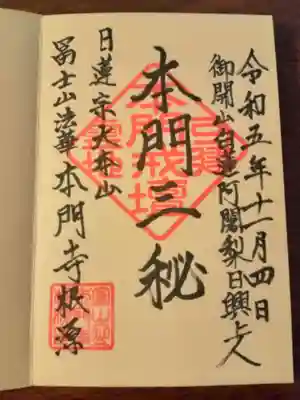 令和五年十一月四日
御開山白蓮阿闍梨日興上人
本門三秘
本門戒壇
日蓮宗大本山
冨士山法華本門寺根源